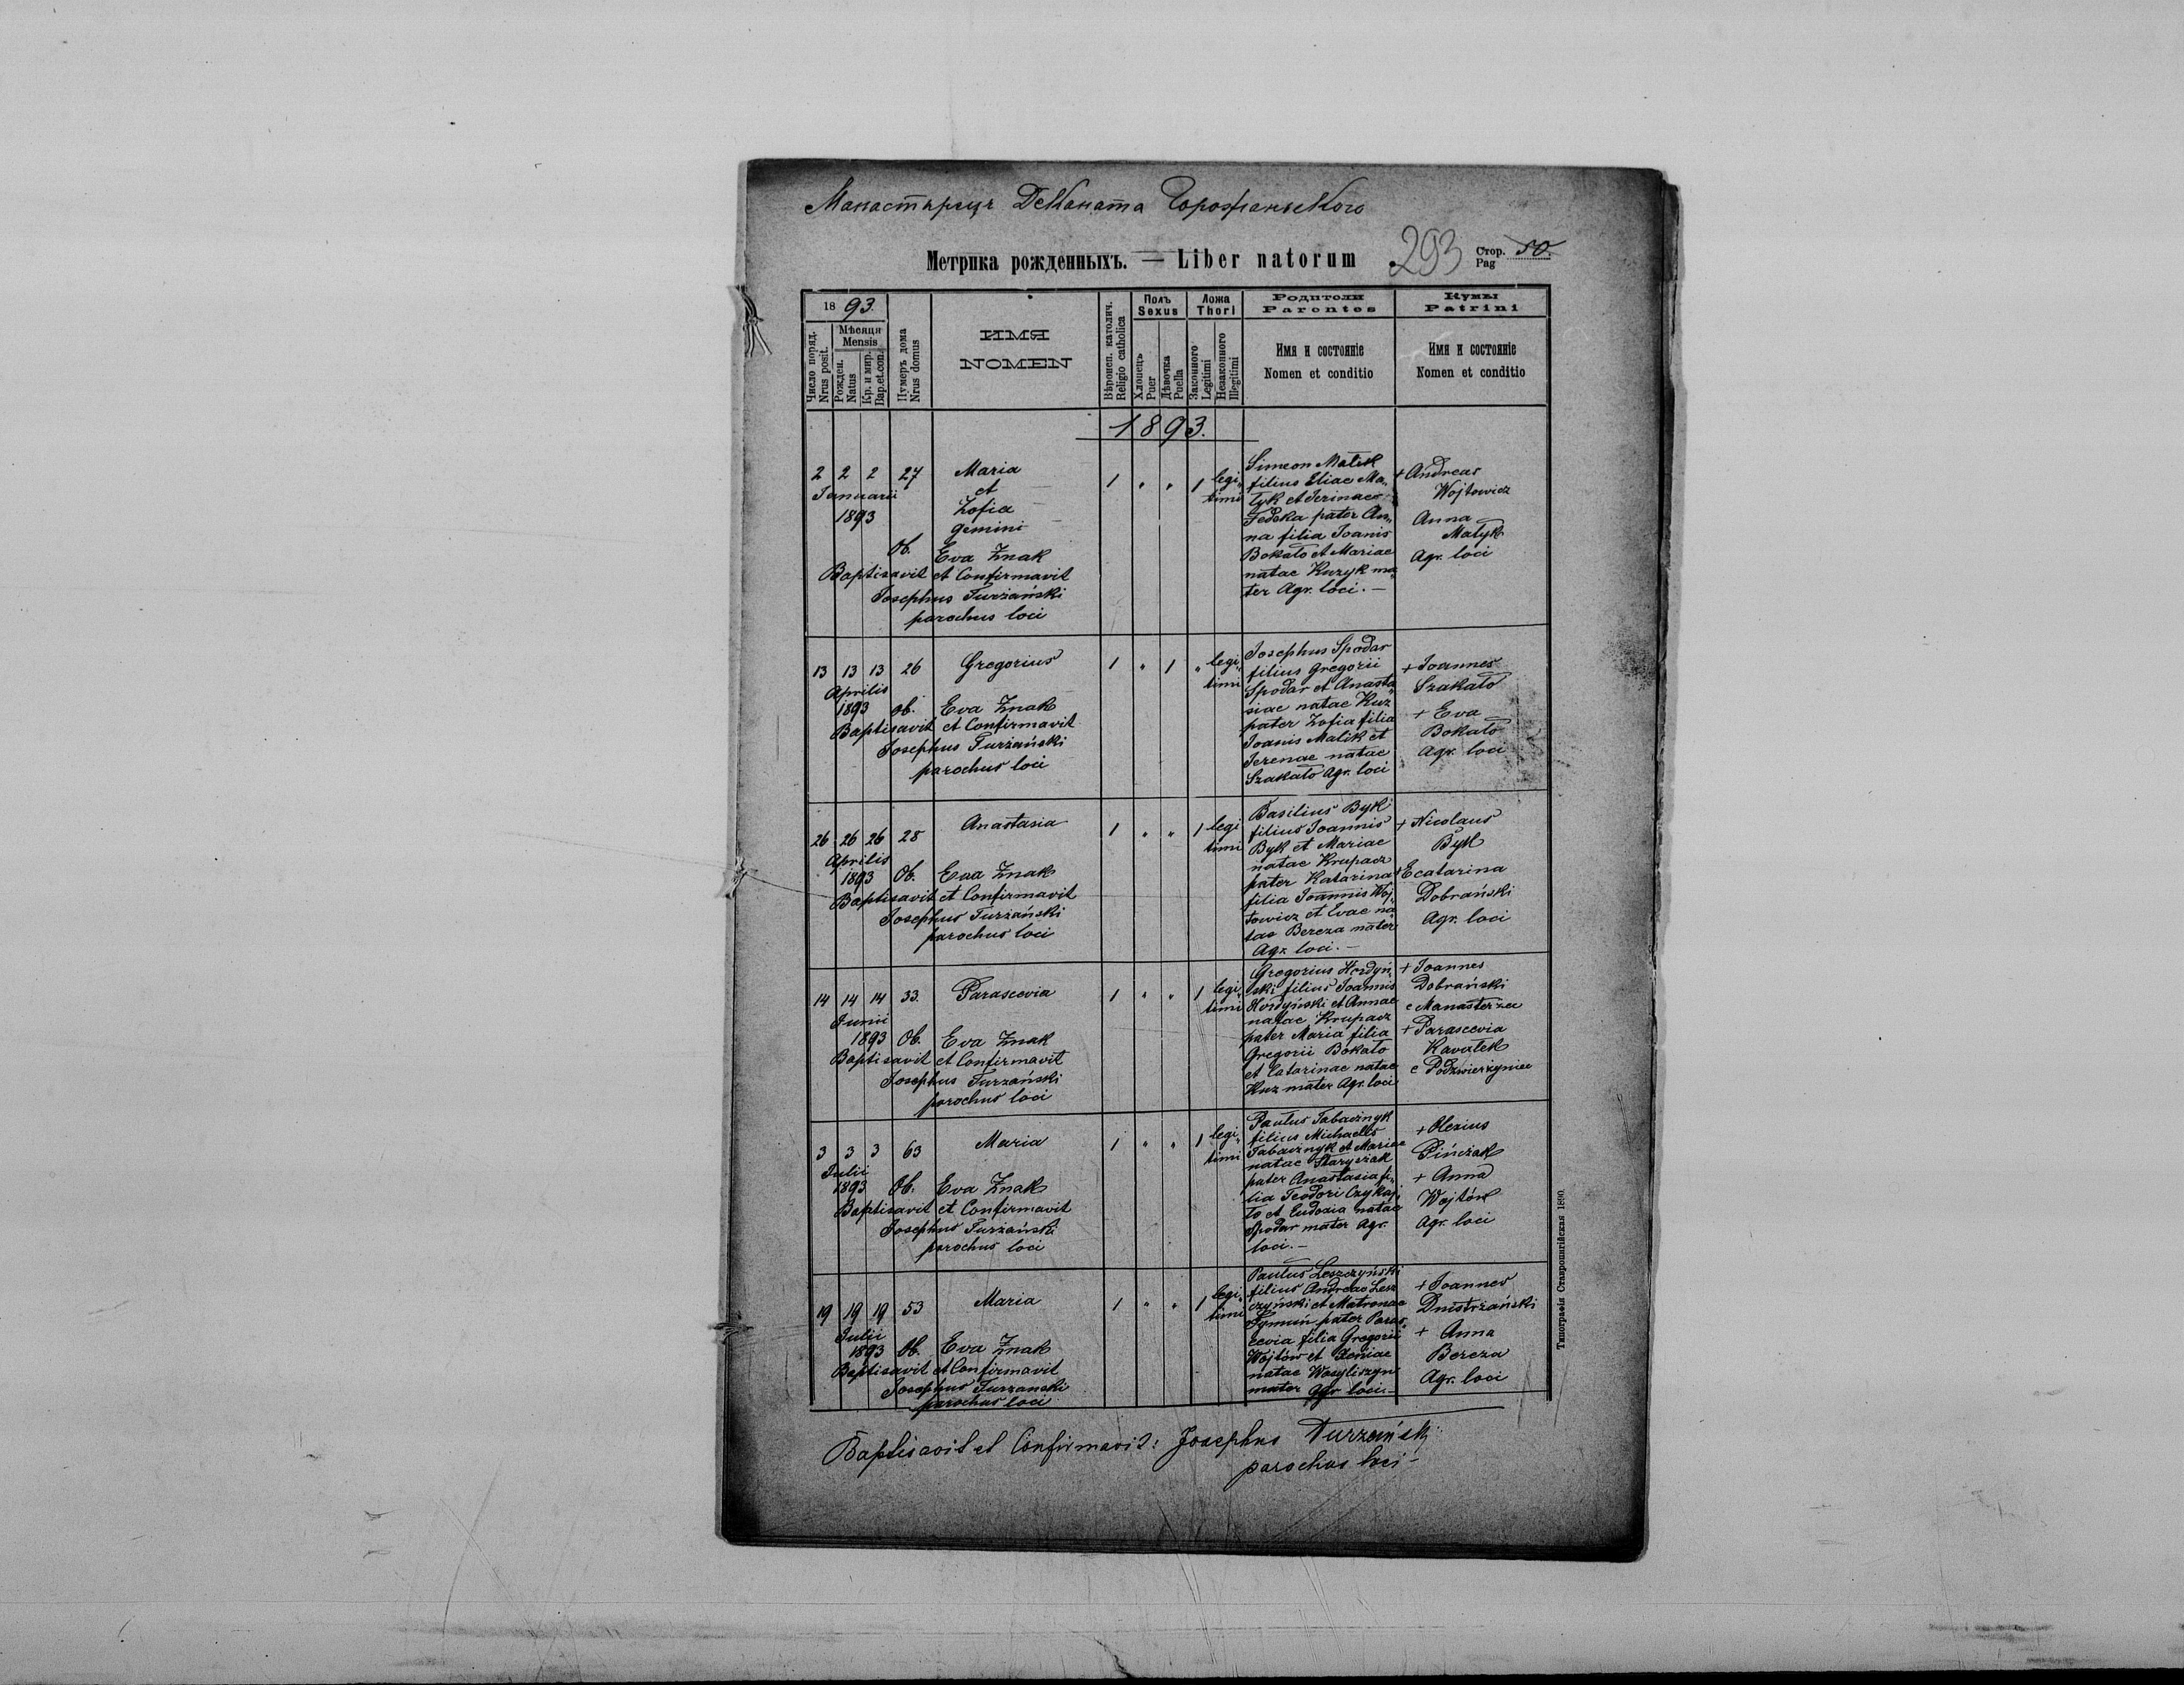 Манастырець Деканата Горожаньского
Метрика рожденныхъ. — Liber natorum
293
Стор. 50.
Pag
18 93.
Число поряд.
Nrus posit.
Мѣсяця
Mensis
Рожден.
Natus
Кр. и мир.
Bap.et.con.
Нумеръ дома
Nrus domus
ИМЯ
NOMEN
Вѣроисп. католич.
Religio catholica
Полъ
Sexus
Хлопецъ
Puer
Дѣвочка
Puella
Ложа
Thori
Законного
Legitimi
Незаконного
Illegitimi
Родители
Parentes
Имя и состояніе
Nomen et conditio
Кумы
Patrini
Имя и состояніе
Nomen et conditio
1893.
2 2 2 27
Januarii
1893
Maria
et
Zofia
gemini
Ob. Eva Znak
Baptisavit et Confirmavit
Josephus Turżański
parochus loci
1 " " 1 legi„
timi
Simeon Matik
filius Eliae Ma„
tyk et Irinae
Fedeka pater An„
na filia Joanis
Bokało et Mariae
natae Kuzyk ma„
ter Agr. loci. —
+ Andreas
Wojtowicz
Anna
Matyk
Agr. loci
13 13 13 26
Aprilis
1893
Gregorius
ob. Eva Znak
Baptisavit et Confirmavit
Josephus Turżański
parochus loci
1 " 1 " legi„
timi
Josephus Spodar
filius Gregorii
Spodar et Anasta„
siae natae Kuz
pater Zofia filia
Joanis Malik et
Jerenae natae
Szakało Agr. loci
+ Joannes
Szakało
+ Eva
Bokało
Agr. loci
26 26 26 28
Aprilis
1893
Anastasia
Ob. Eva Znak
Baptisavit et Confirmavit
Josephus Turżański
parochus loci
1 " " 1 legi
timi
Basilius Byk
filius Joannis
Byk et Mariae
natae Krupacz
pater Katarina
filia Joannis Woj„
towicz et Evae na„
tae Bereza mater
Agr. loci. —
+ Nicolaus
Byk
+ Ecatarina
Dobrański
Agr. loci
14 14 14 33.
Junii
1893
Parascevia
Ob. Eva Znak
Baptisavit et Confirmavit
Josephus Turzański
parochus loci
1 " " 1 legi„
timi
Gregorius Hordyń„
ski filius Joannis
Hordyński et Annae
natae Krupacz
pater Maria filia
Gregorii Bokało
et Catarinae natae
Kuz mater Agr. loci
+ Joannes
Dobrański
e Manasterzec
+ Parascevia
Kavałek
e Podzwierzyniec
3 3 3 63
Julii
1893
Maria
Ob. Eva Znak
Baptisavit et Confirmavit
Josephus Turżański
parochus loci
1 " " 1 legi„
timi
Paulus Tabacznyk
filius Michaelis
Tabacznyk et Mariae
natae Staryszak
pater Anastasia fi„
lia Teodori Czykaj„
ło et Eudoxia natae
Spodar mater Agr.
loci. —
+ Olexius
Pińczak
+ Anna
Wojtów
Agr. loci
19 19 19 53
Julii
1893
Maria
Ob. Eva Znak
Baptisavit et Confirmavit
Josephus Turzanski
parochus loci
1 " " 1 legi„
timi
Paulus Leszczyński
filius Andreae Lesz
czyński et Matronae
Symun pater Paras„
cevia filia Gregorii
Wojtów et Xeniae
natae Wasyliszyn
mater Agr. loci. —
+ Joannes
Dnistrzański
+ Anna
Bereza
Agr. loci
Baptisavit et Confirmavit: Josephus Turzański
parochus loci —
Типографія Ставропигійская 1890.